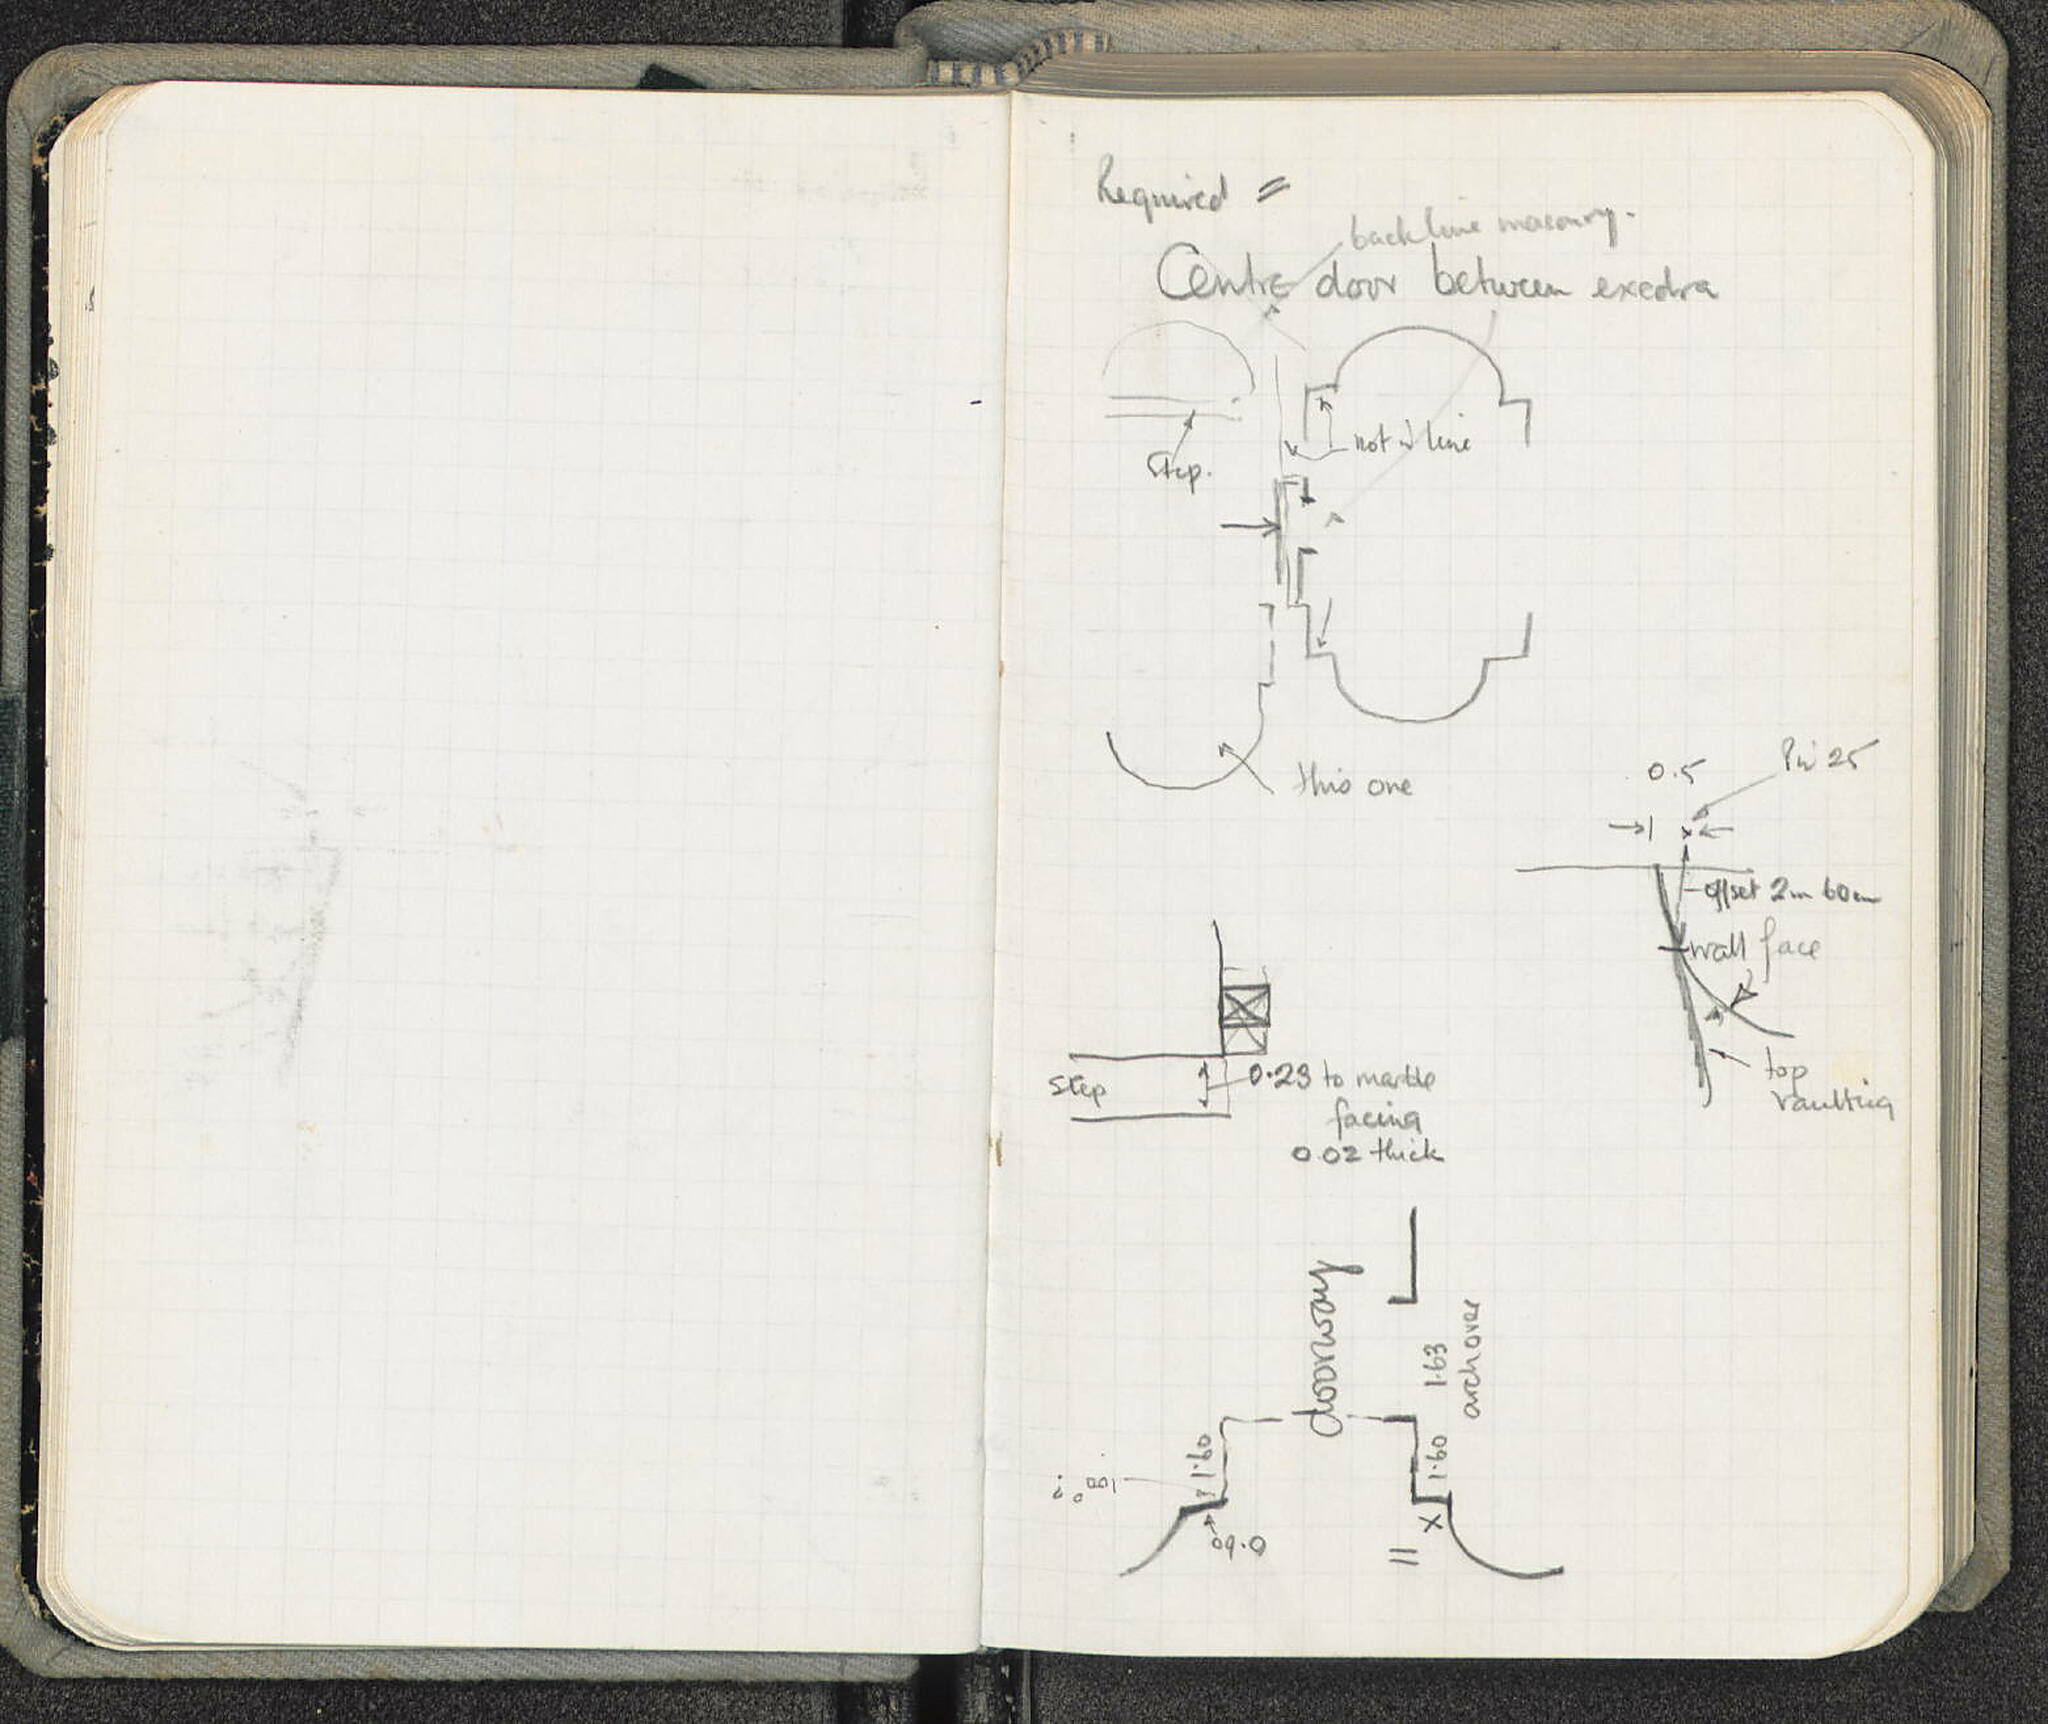 Required =
back line masonry.
Centre door between exedra
Step.
not in line
this one
0.5
Pin 25
offset 2m 60cm
wall face
top
vaulting
Step
0.23 to marble
facing
0.02 thick
doorway
1.63
archover
1.60
1.60
0.60
X
=